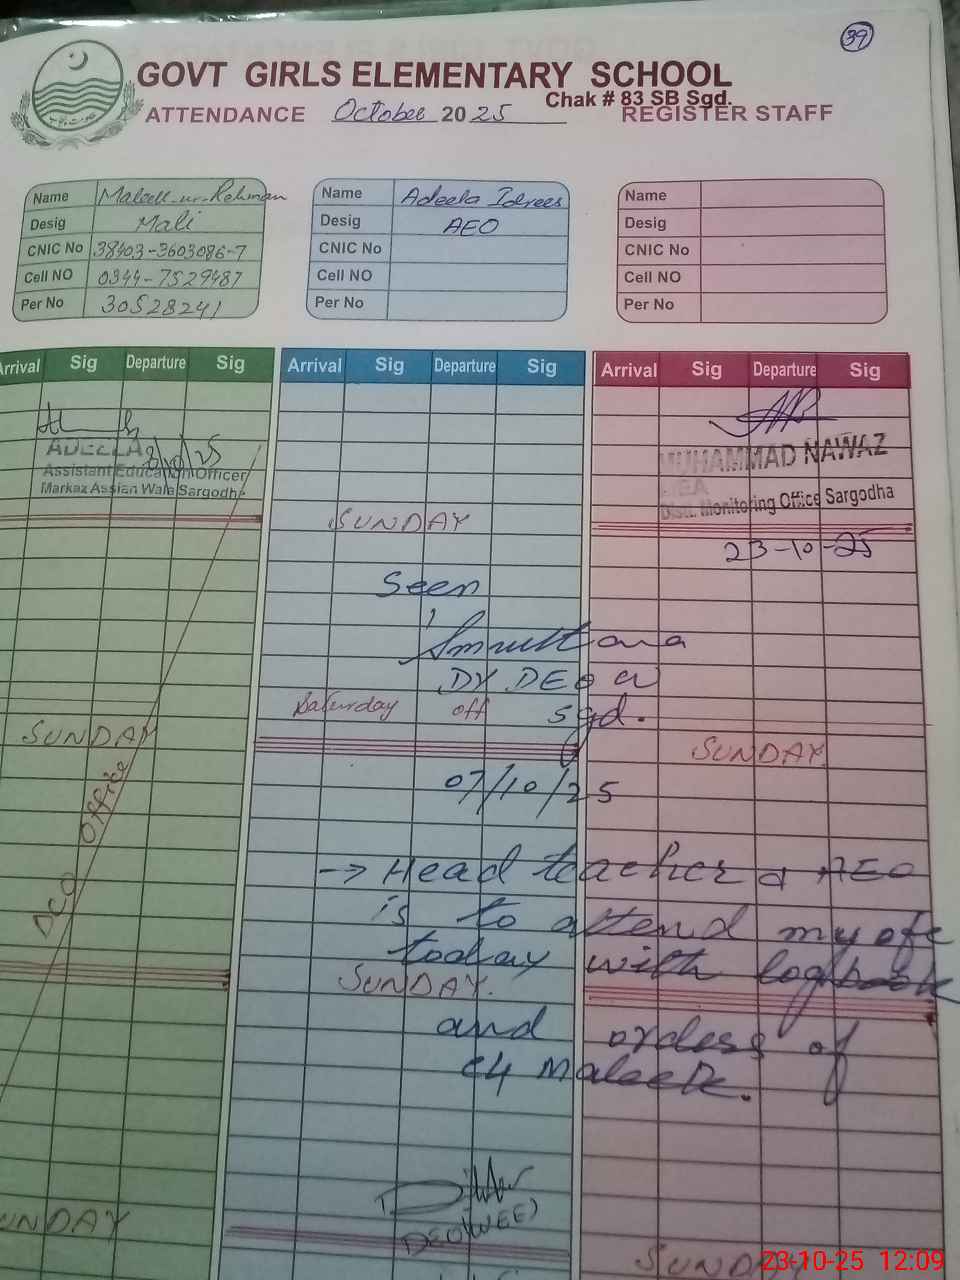 39
GOVT GIRLS ELEMENTARY SCHOOL
Chak # 83 SB Sgd.
ATTENDANCE October 2025 REGISTER STAFF
Name Maleek-ur-Rehman
Desig Mali
CNIC No 38403-3603086-7
Cell NO 0344-7529487
Per No 30528241
Name Adeela Idrees
Desig AEO
CNIC No
Cell NO
Per No
Name
Desig
CNIC No
Cell NO
Per No
Arrival Sig Departure Sig
Arrival Sig Departure Sig
Arrival Sig Departure Sig
ADEELA
Assistant Education Officer
Markaz Assian Wala Sargodha
SUNDAY
DEO Office
SUNDAY
SUNDAY
Seen
DY DEO
Sgd.
Saturday off
07/10/25
→ Head teacher & AEO
is to attend my ofc
today with logbook
SUNDAY.
and orders of
C4 Maleek.
DEO(WEE)
MUHAMMAD NAWAZ
MEA
Distt. Monitoring Office Sargodha
23-10-25
SUNDAY.
SUNDAY
23-10-25 12:09